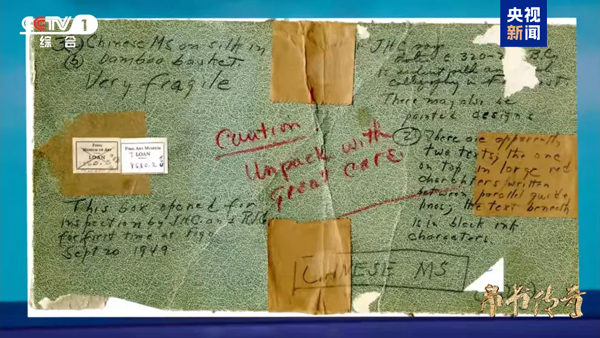 CCTV 1
综合
央视
新闻
3 (a) Chinese MS on silk in
(b) bamboo basket
Very fragile
JHC
There may also be
painted designs
Caution!
Unpack with
great care
(2) There are apparently
two texts, the one
on top in large red
characters written
between parallel guide
lines, the text beneath
is in black ink
characters.
LOAN
LOAN
This box opened for
inspection by JHC and
for first time at
Sept 20 1949
CHINESE MS
帛书传奇